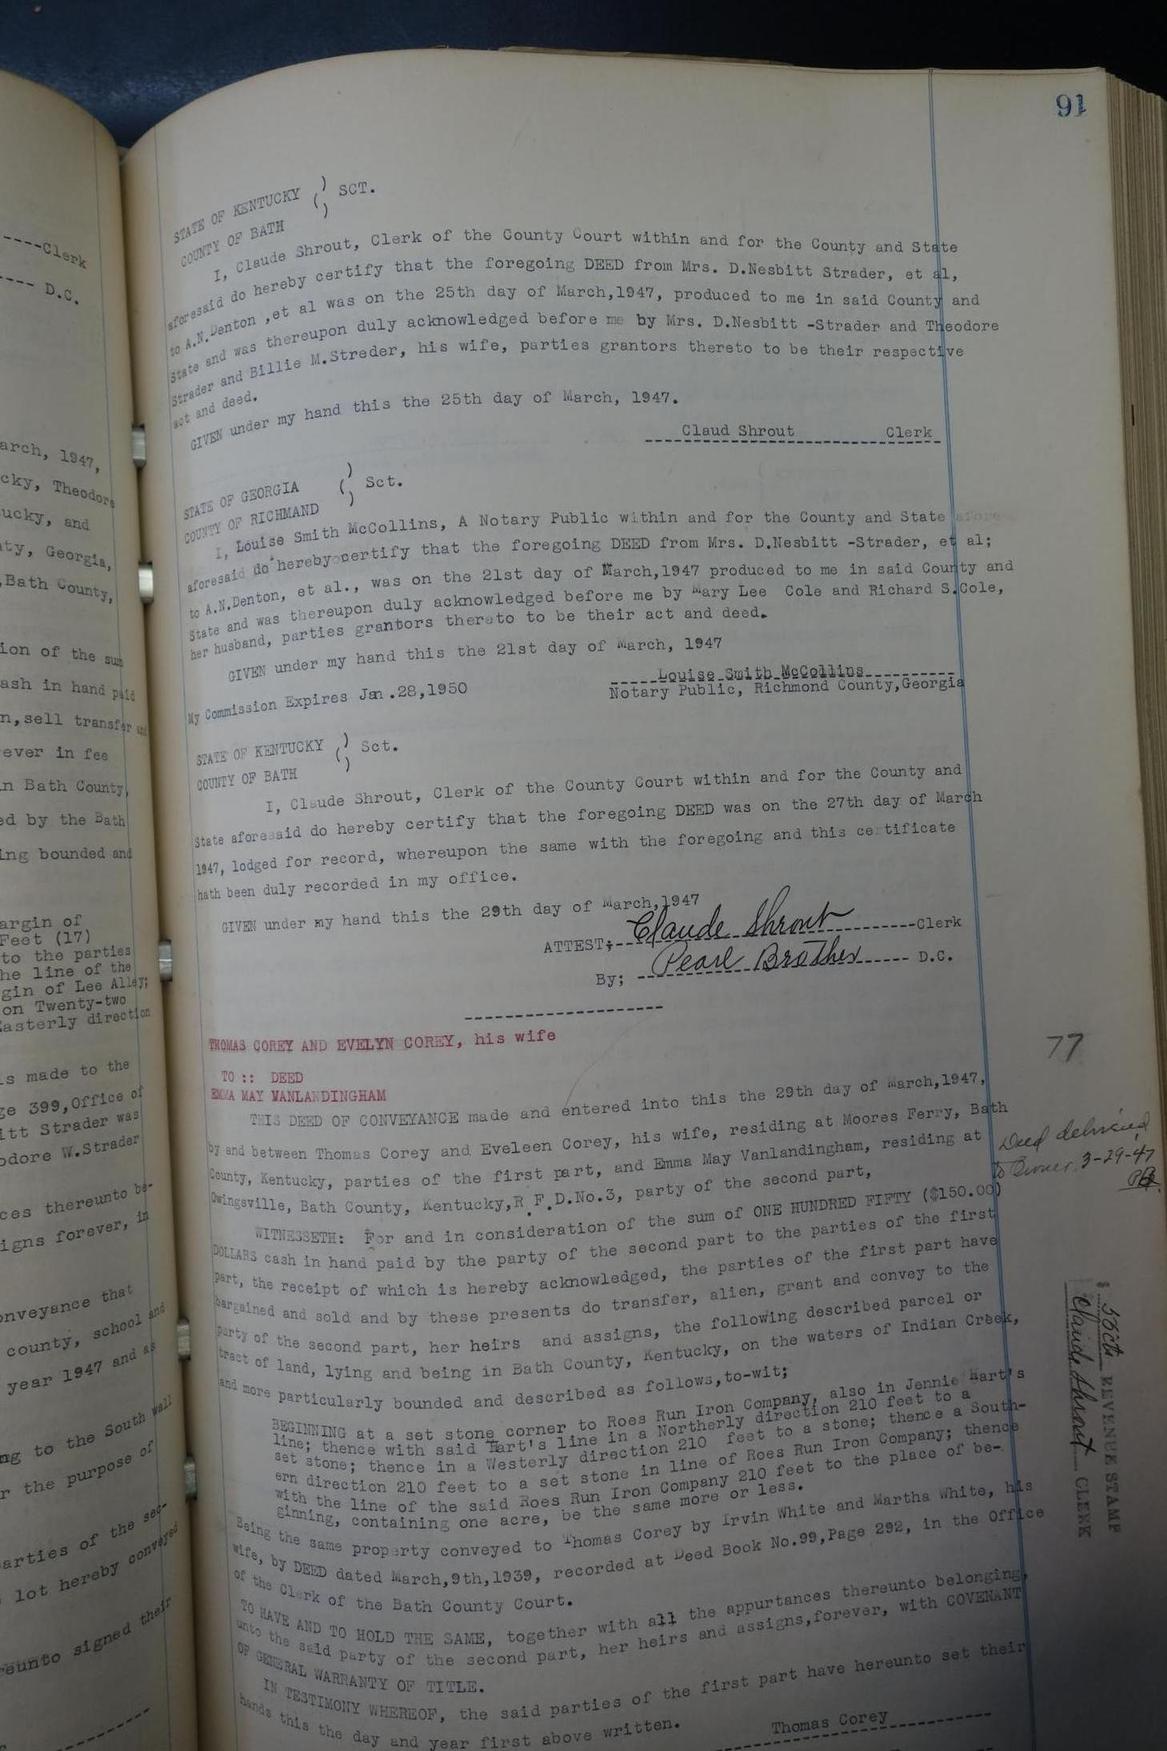 91
----Clerk
---- D.C.
arch, 1947,
cky, Theodore
ucky, and
ty, Georgia,
,Bath County,
ion of the sum
ash in hand paid
n,sell transfer and
ever in fee
in Bath County,
ed by the Bath
ing bounded and
argin of
Feet (17)
to the parties
he line of the
gin of Lee Alley;
on Twenty-two
Easterly direction
is made to the
ge 399,Office of
itt Strader was
odore W.Strader
ces thereunto be-
igns forever, in
onveyance that
county, school and
year 1947 and as
ng to the South wall
r the purpose of
arties of the sec-
lot hereby conveyed
reunto signed their
STATE OF KENTUCKY ) SCT.
COUNTY OF BATH
I, Claude Shrout, Clerk of the County Court within and for the County and State
aforesaid do hereby certify that the foregoing DEED from Mrs. D.Nesbitt Strader, et al,
to A.N.Denton ,et al was on the 25th day of March,1947, produced to me in said County and
State and was thereupon duly acknowledged before me by Mrs. D.Nesbitt -Strader and Theodore
Strader and Billie M.Streder, his wife, parties grantors thereto to be their respective
act and deed.
GIVEN under my hand this the 25th day of March, 1947.
Claud Shrout Clerk
STATE OF GEORGIA ) Sct.
COUNTY OF RICHMAND
I, Louise Smith McCollins, A Notary Public within and for the County and State afores
aforesaid do hereby certify that the foregoing DEED from Mrs. D.Nesbitt -Strader, et al;
to A.N.Denton, et al., was on the 21st day of March,1947 produced to me in said County and
State and was thereupon duly acknowledged before me by Mary Lee Cole and Richard S.Cole,
her husband, parties grantors thereto to be their act and deed.
GIVEN under my hand this the 21st day of March, 1947
Louise Smith McCollins
My Commission Expires Jan .28,1950 Notary Public, Richmond County,Georgia
STATE OF KENTUCKY ) Sct.
COUNTY OF BATH
I, Claude Shrout, Clerk of the County Court within and for the County and
State aforesaid do hereby certify that the foregoing DEED was on the 27th day of March
1947, lodged for record, whereupon the same with the foregoing and this certificate
hath been duly recorded in my office.
GIVEN under my hand this the 29th day of March,1947
ATTEST; Claude Shrout Clerk
By; Pearl Brother D.C.
THOMAS COREY AND EVELYN COREY, his wife
TO :: DEED
EMMA MAY VANLANDINGHAM
77
THIS DEED OF CONVEYANCE made and entered into this the 29th day of March,1947,
by and between Thomas Corey and Eveleen Corey, his wife, residing at Moores Ferry, Bath
County, Kentucky, parties of the first part, and Emma May Vanlandingham, residing at
Owingsville, Bath County, Kentucky,R.F.D.No.3, party of the second part,
Deed delivered
to Owner, 3-29-47
PB
WITNESSETH: For and in consideration of the sum of ONE HUNDRED FIFTY ($150.00)
DOLLARS cash in hand paid by the party of the second part to the parties of the first
part, the receipt of which is hereby acknowledged, the parties of the first part have
bargained and sold and by these presents do transfer, alien, grant and convey to the
party of the second part, her heirs and assigns, the following described parcel or
tract of land, lying and being in Bath County, Kentucky, on the waters of Indian Creek,
and more particularly bounded and described as follows,to-wit;
55cts REVENUE STAMP
Claude Shrout CLERK
BEGINNING at a set stone corner to Roes Run Iron Company, also in Jennie Hart's
line; thence with said Hart's line in a Northerly direction 210 feet to a
set stone; thence in a Westerly direction 210 feet to a stone; thence a South-
ern direction 210 feet to a set stone in line of Roes Run Iron Company; thence
with the line of the said Roes Run Iron Company 210 feet to the place of be-
ginning, containing one acre, be the same more or less.
Being the same property conveyed to Thomas Corey by Irvin White and Martha White, his
wife, by DEED dated March,9th,1939, recorded at Deed Book No.99,Page 292, in the Office
of the Clerk of the Bath County Court.
TO HAVE AND TO HOLD THE SAME, together with all the appurtances thereunto belonging,
unto the said party of the second part, her heirs and assigns,forever, with COVENANT
OF GENERAL WARRANTY OF TITLE.
IN TESTIMONY WHEREOF, the said parties of the first part have hereunto set their
hands this the day and year first above written.
Thomas Corey